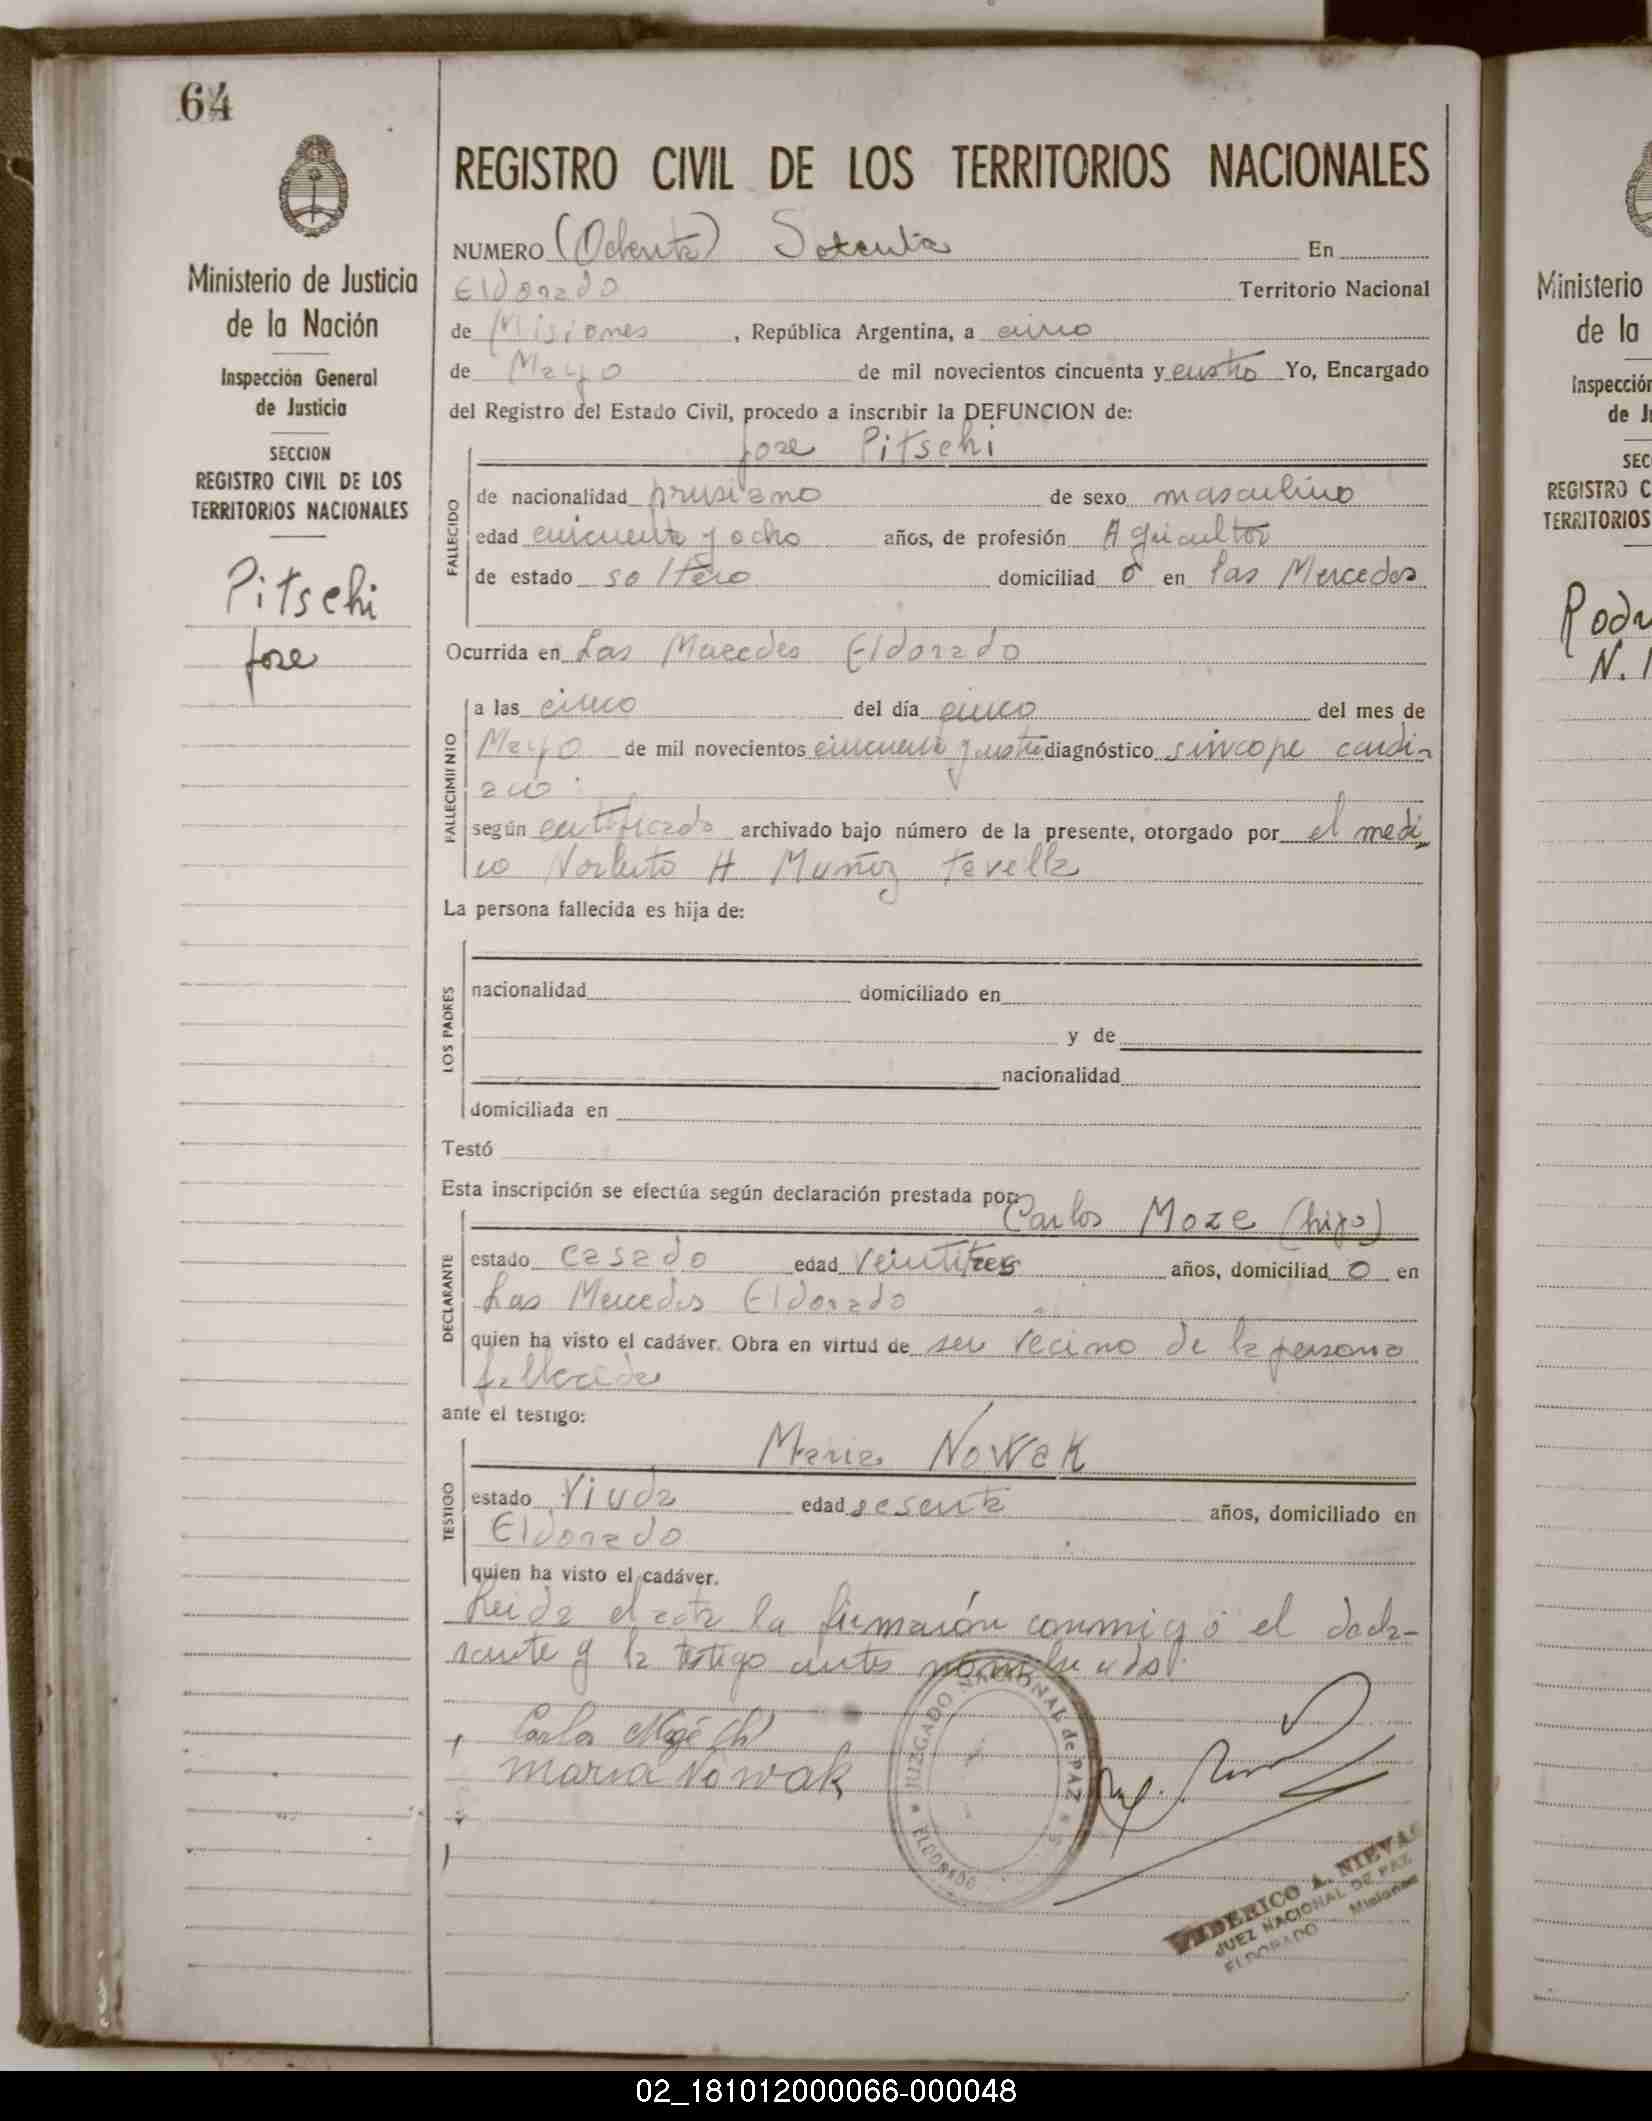 64
Ministerio de Justicia
de la Nación
Inspección General
de Justicia
SECCION
REGISTRO CIVIL DE LOS
TERRITORIOS NACIONALES
Pitschi
Jose
REGISTRO CIVIL DE LOS TERRITORIOS NACIONALES
NUMERO (Ochenta) Setenta En
Eldorado Territorio Nacional
de Misiones, República Argentina, a cinco
de Mayo de mil novecientos cincuenta y cuatro Yo, Encargado
del Registro del Estado Civil, procedo a inscribir la DEFUNCION de:
Jose Pitschi
FALLECIDO
de nacionalidad prusiano de sexo masculino
edad cincuenta y ocho años, de profesión Agricultor
de estado soltero domiciliad o en Las Mercedes
Ocurrida en Las Mercedes Eldorado
FALLECIMIENTO
a las cinco del día cinco del mes de
Mayo de mil novecientos cincuenta y cuatro diagnóstico sincope cardi-
aco
según certificado archivado bajo número de la presente, otorgado por el medi
co Norberto H Muñoz Tavella
La persona fallecida es hija de:
LOS PADRES
nacionalidad domiciliado en
y de
nacionalidad
domiciliada en
Testó
Esta inscripción se efectúa según declaración prestada por:
Carlos Moze (hijo)
DECLARANTE
estado casado edad veintitres años, domiciliad o en
Las Mercedes Eldorado
quien ha visto el cadáver. Obra en virtud de ser vecino de la persona
fallecida
ante el testigo:
Maria Nowak
TESTIGO
estado Viuda edad sesenta años, domiciliado en
Eldorado
quien ha visto el cadáver.
Leida el acta la firmarón conmigo el decla-
rante y la testigo antes nombrados.
Carlos (h)
maria Nowak
JUZGADO NACIONAL de PAZ
ELDORADO
FEDERICO A. NIEVAS
JUEZ NACIONAL DE PAZ
ELDORADO Misiones
Ministerio
de la
Inspección
de J
SEC
REGISTRO C
TERRITORIOS
Rodr
N.
02_181012000066-000048